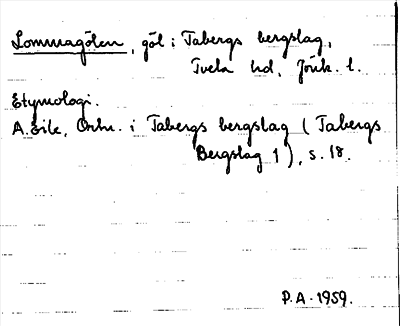 Lommagölen, göl i Tabergs bergslag,
Tveta hd, Jönk. l.
Etymologi.
A. Ek, Ortn. i Tabergs bergslag (Tabergs
Bergslag 1), s. 18.
P.A. 1959.